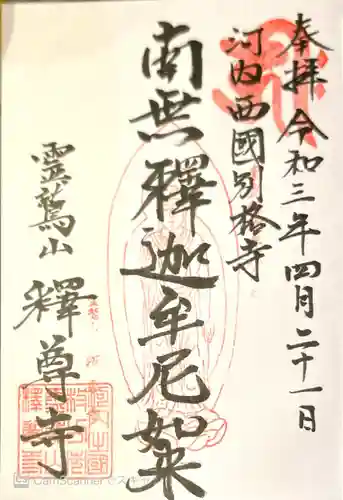 奉拝 令和三年四月二十一日
河内西國別格寺
南無釋迦牟尼如来
霊鷲山
釋尊寺
CamScannerでスキャ